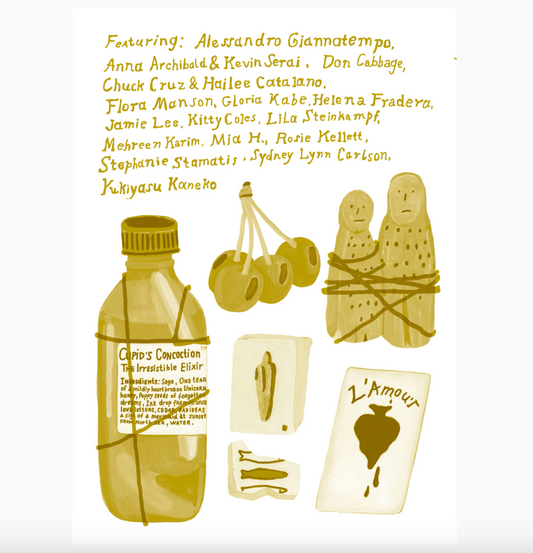 Featuring: Alessandro Giannatempo,
Anna Archibald & Kevin Serai, Don Cabbage,
Chuck Cruz & Hailee Catalano,
Flora Manson, Gloria Kabe, Helena Fradera,
Jamie Lee, Kitty Coles, Lila Steinkampf,
Mehreen Karim, Mia H., Rosie Kellett,
Stephanie Stamatis, Sydney Lynn Carlson,
Yukiyasu Kaneko
Cupid's Concoction™
The Irresistible Elixir
Ingredients: Sage, One tear
of a mildly heartbroken Unicorn,
honey, Poppy seeds of forgotten
dreams, Ink drop from
love letters, CEDAR, BAD IDEAS
a sigh of a mermaid at sunset
from North SEA, WATER.
L'Amour